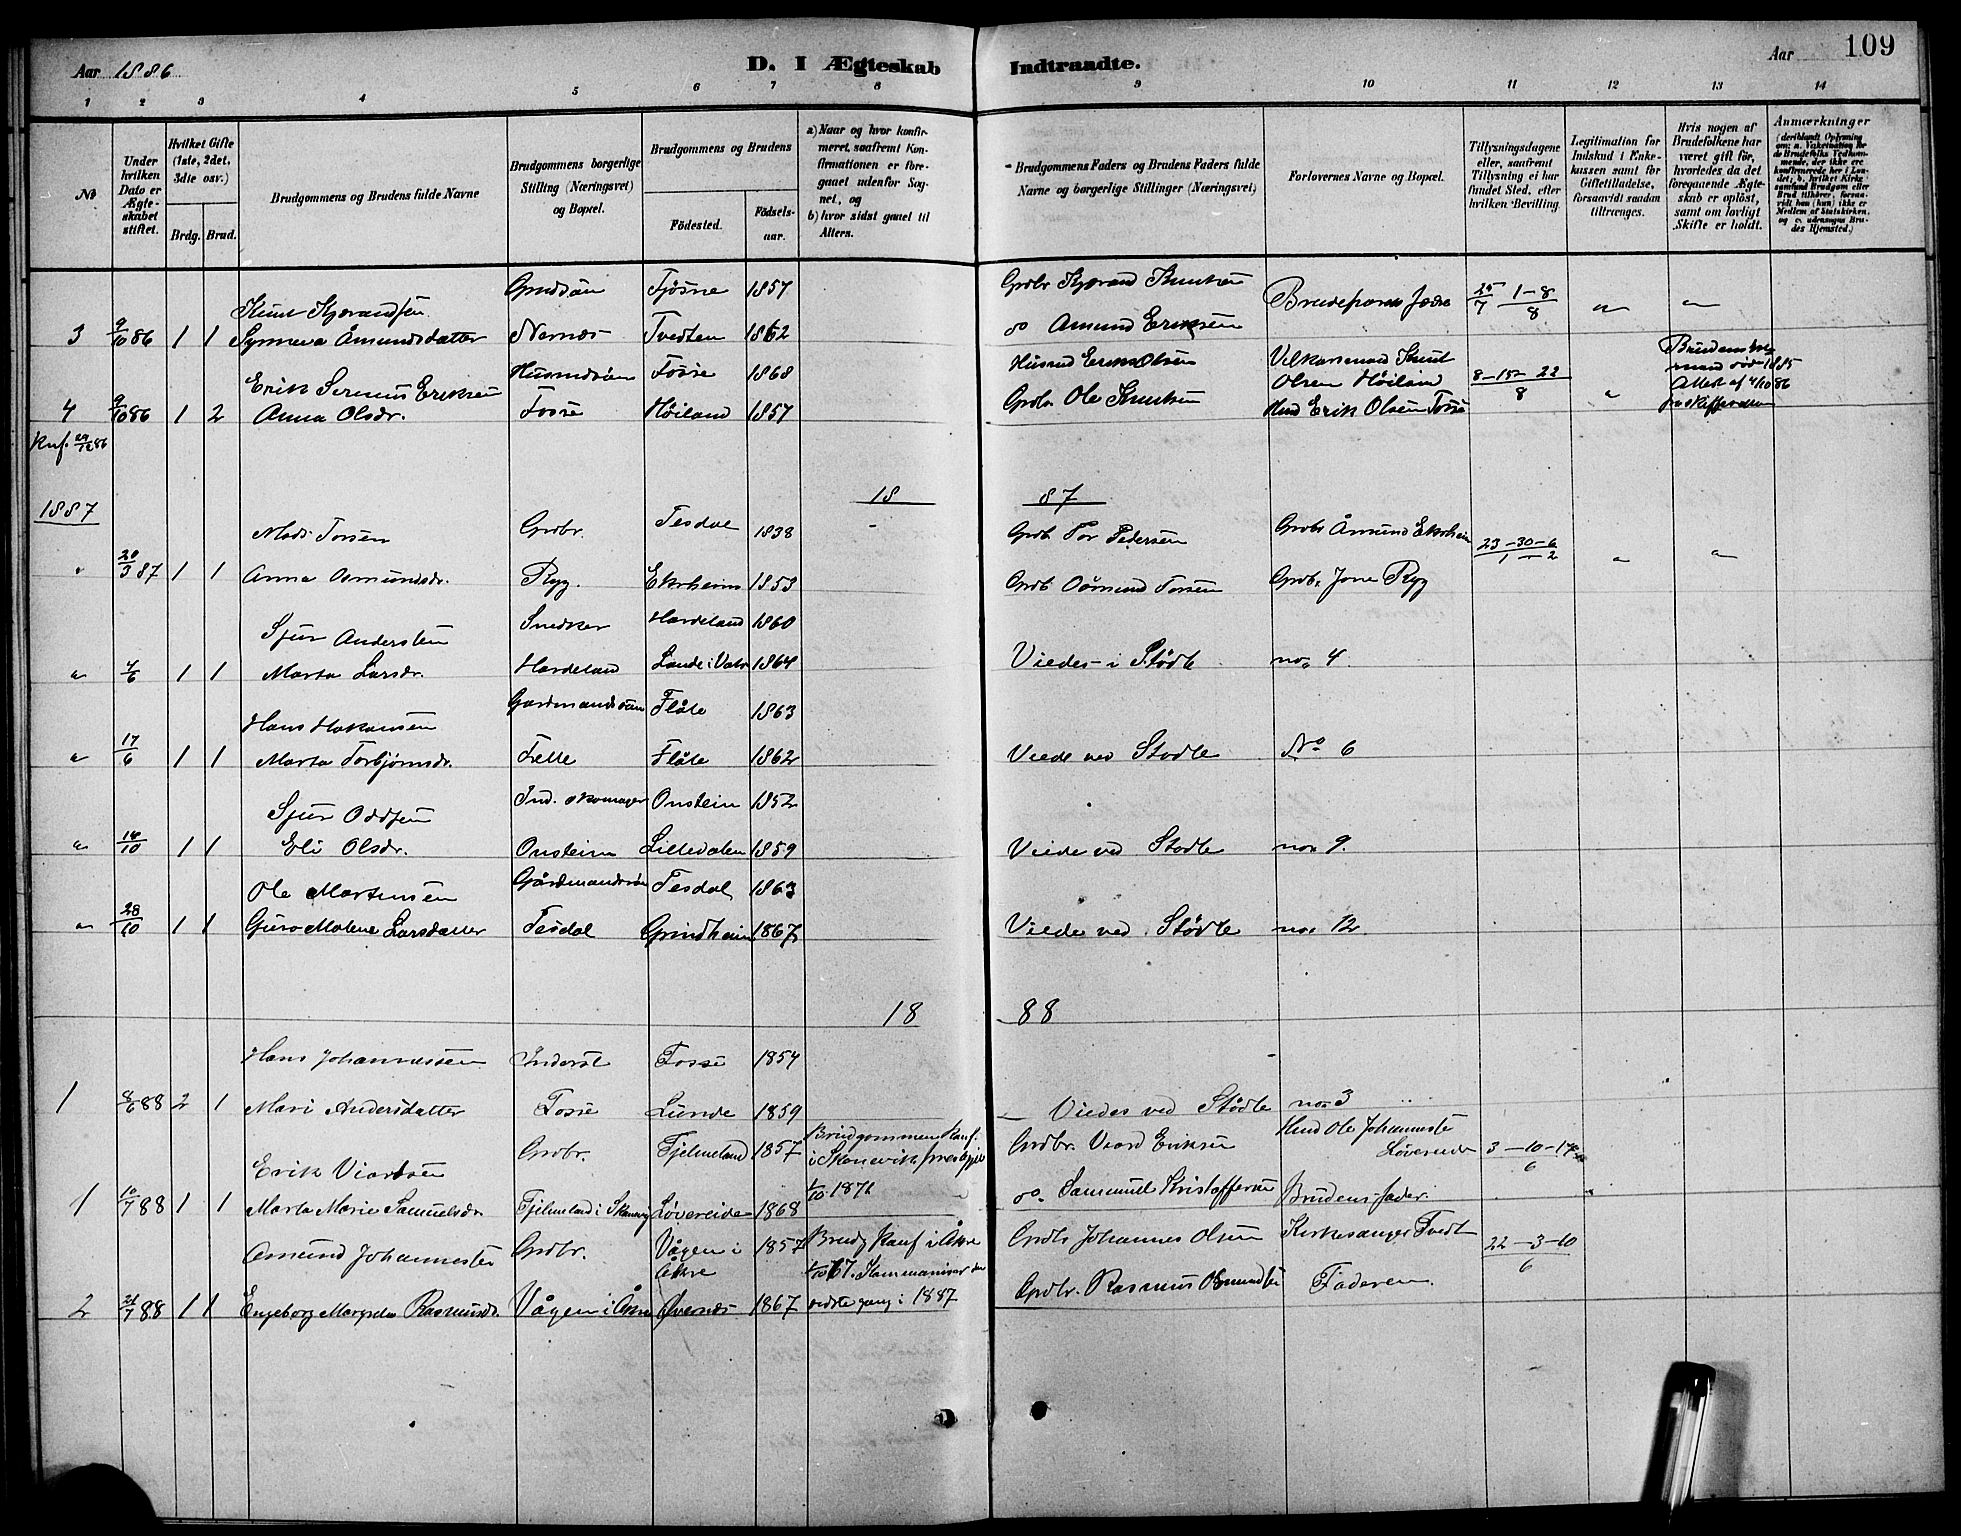 Aar 1886
D. I Ægteskab Indtraadte.
Aar 109
1 2 3 4 5 6 7 8 9 10 11 12 13 14
No
Under hvilken Dato er Ægteskabet stiftet.
Hvilket Gifte (1ste, 2det, 3die osv.)
Brdg. Brud.
Brudgommens og Brudens fulde Navne
Brudgommens borgerlige Stilling (Næringsvei) og Bopæl.
Brudgommens og Brudens
Fødested. Fødselsaar.
a) Naar og hvor konfirmeret, saafremt Konfirmationen er foregaaet udenfor Sognet, og
b) hvor sidst gaaet til Alters.
Brudgommens Faders og Brudens Faders fulde Navne og borgerlige Stillinger (Næringsvei)
Forlovernes Navne og Bopæl.
Tillysningsdagene eller, saafremt Tillysning ei har fundet Sted, efter hvilken Bevilling.
Legitimation for Indskud i Enkekassen samt for Giftetilladelse, forsaavidt saadan tiltrænges.
Hvis nogen af Brudefolkene har været gift før, hvorledes da det foregaaende Ægteskab er opløst, samt om lovligt Skifte er holdt.
Anmærkninger
Gmdsøn Fjøsne 1857 Grdbr Kjærand Knutsen
Knut Kjærandsen Brudeparrets Fædre 25/7 1-8/8 " "
3 9/10 86 1 1 Synneva Åmundsdatter Nernæs Tvedten 1862 do Amund Eriksen
Husmdsøn Fosse 1868 Husmd Erik Olsen Velkarsmand Knut
Erik Serenus Eriksen Olsen Høiland 8-15-22/8
4 9/10 86 1 2 Anna Olsdr. Fosse Høiland 1857 Grdbr Ole Knutsen Hmd Erik Olsen Fosse "
Attest af 4/10 86
Knf. 29/12 86
1887
18 87
Mads Torsen Grdbr. Tesdal 1838 Grdb. Tor Pedersen Grdbr Åmund Ekrheim
" 20/3 87 1 1 Anna Osmundsdr. Ryg. Ekrheim 1853 Grdb. Osmund Torsen Grdb. Jone Ryg 23-30-6/1-2 " "
Sjur Andersen Snedker Hardeland 1860
" 4/6 1 1 Marta Larsdr. Hardeland Lande i Vats 1864 Viedes i Stødle no. 4.
Hans Hakonsen Gardmandssøn Flåte 1863
" 17/6 1 1 Marta Torbjørnsdr. Fette Flåte 1862 Viede ved Stødle No 6
Sjur Oddsen Ind. skomager Onstein 1852
" 14/10 1 1 Eli Olsdr. Onstein Lilledalen 1859 Viede ved Stødle no. 9.
Ole Martinsen Gårdmandssøn Tesdal 1863
" 28/10 1 1 Guro Malene Larsdatter Tesdal Grindheim 1867 Viede ved Stødle no. 12
18 88
Hans Johannessen Inderst Fosse 1854
1 8/6 88 2 1 Mari Andersdatter Fosse Lunde 1859 Viedes ved Stødle no. 3
Erik Viardsen Grdbr. Fjelmeland 1857 Brudgommen Konf. i Skonevik præstegjeld 1/10 1871 Grdbr. Veard Eriksen Hmd Ole Johannessen Løvereide 3-10-17/6
1 10/7 88 1 1 Marta Marie Samuelsdr Fjelmeland i Skonevig Løvereide 1868 do. Samuel Kristoffersen Brudens fader.
Osmund Johannessen Grdbr. Vågen i Åkre 1857 Brudg Konf i Åkre Grdb Johannes Olsen Kirkesanger Tvedt 22-3-10/6
2 21/7 88 1 1 Engeborg Margreta Rasmusdr. Vågen i Åkre Øvernæs 1867 sidste gang i 1887 Grdbr. Rasmus Osmundsen Faderen.